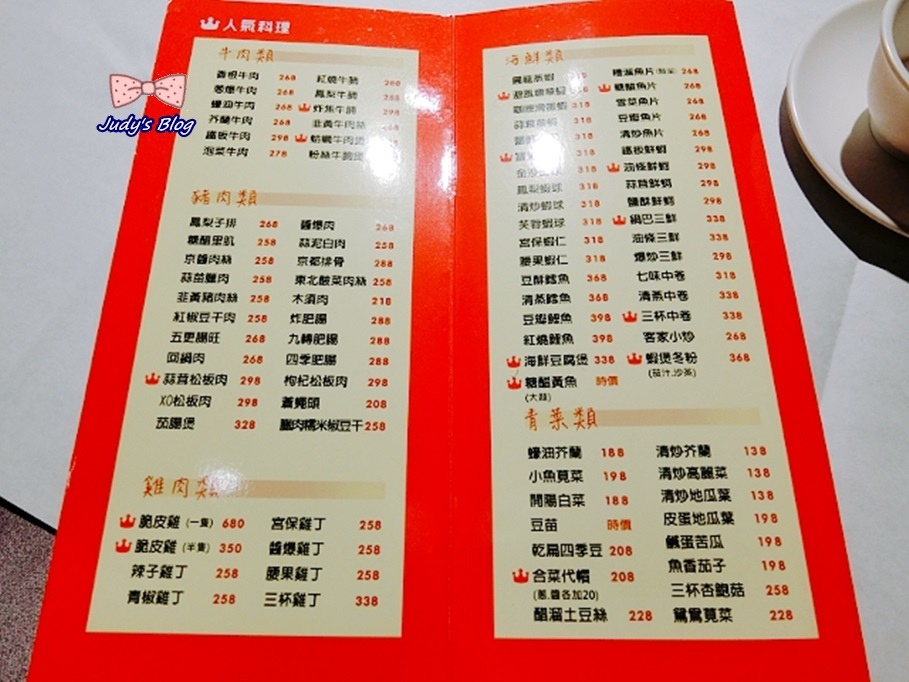 人氣料理
Judy's Blog
牛肉類
香根牛肉 268
蔥爆牛肉 268
蠔油牛肉 268
芥蘭牛肉 268
鐵板牛肉 298
泡菜牛肉 278
紅燒牛腩 288
鳳梨牛腩 288
298
韭黃牛肉絲
豬肉類
鳳梨子排 268
糖醋里肌 258
京醬肉絲 258
蒜苗臘肉 258
韭黃豬肉絲 258
紅椒豆干肉 258
五更腸旺 268
回鍋肉 268
蒜茸松板肉 298
XO松板肉 298
茄腸煲 328
醬爆肉 268
蒜泥白肉 258
京都排骨 288
東北酸菜肉絲 258
木須肉 218
炸肥腸 288
九轉肥腸 288
四季肥腸 288
枸杞松板肉 298
蒼蠅頭 208
臘肉糯米椒豆干 258
雞肉類
脆皮雞 (一隻) 680
脆皮雞 (半隻) 350
辣子雞丁 258
青椒雞丁 258
宮保雞丁 258
醬爆雞丁 258
腰果雞丁 258
三杯雞丁 338
海鮮類
鳳梨蝦球 318
清炒蝦球 318
芙蓉蝦球 318
宮保蝦仁 318
腰果蝦仁 318
豆酥鱈魚 368
清蒸鱈魚 368
豆瓣鯉魚 398
紅燒鯉魚 398
海鮮豆腐煲 338
糖醋黃魚 時價
(大蒜)
糟溜魚片 268
糖醋魚片 268
雪菜魚片 268
豆瓣魚片 268
清炒魚片 268
鐵板鮮蚵 298
油條鮮蚵 298
蒜茸鮮蚵 298
鹽酥鮮蚵 298
鍋巴三鮮 338
油條三鮮 338
爆炒三鮮 298
七味中卷 318
清蒸中卷 338
三杯中卷 338
客家小炒 268
蝦煲冬粉 368
(茄汁.沙茶)
青菜類
蠔油芥蘭 188
小魚莧菜 198
開陽白菜 188
豆苗 時價
乾扁四季豆 208
合菜代帽 208
(蔥.醬各加20)
醋溜土豆絲 228
清炒芥蘭 138
清炒高麗菜 138
清炒地瓜葉 138
皮蛋地瓜葉 198
鹹蛋苦瓜 198
魚香茄子 198
三杯杏鮑菇 258
鴛鴦莧菜 228